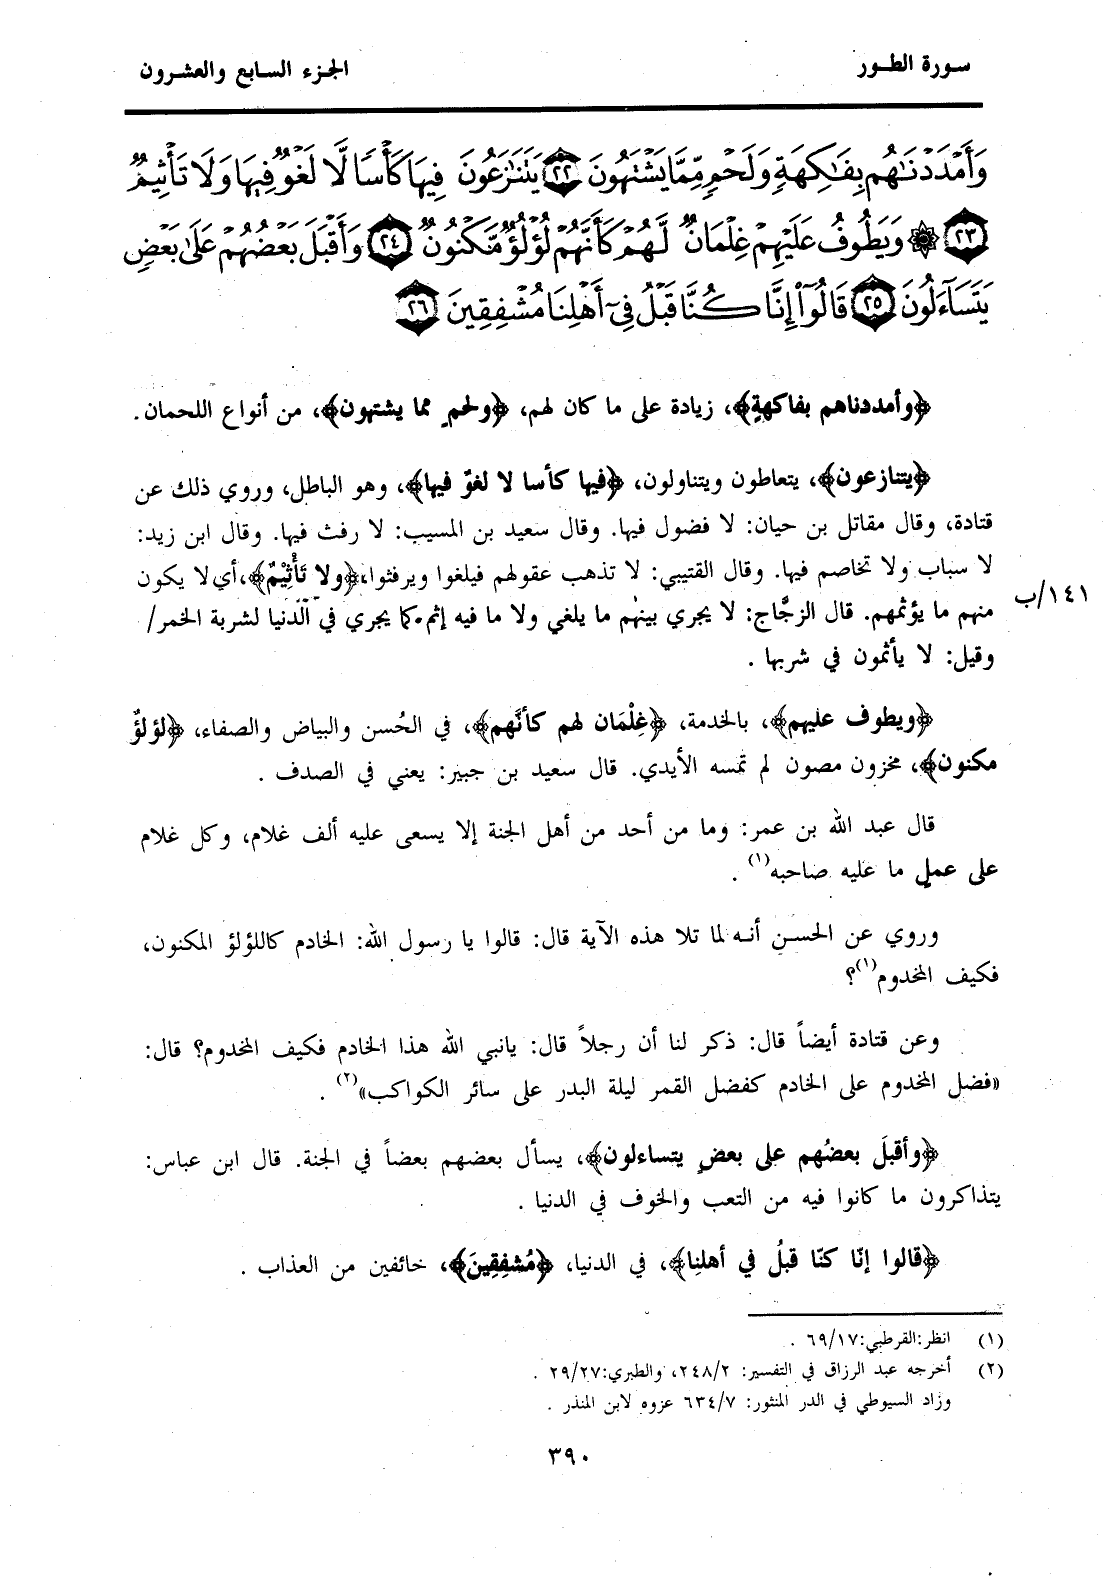 سورة الطور
الجزء السابع والعشرون
وَأَمْدَدْنَٰهُم بِفَٰكِهَةٍ وَلَحْمٍ مِّمَّا يَشْتَهُونَ ٢٢ يَتَنَٰزَعُونَ فِيهَا كَأْسًا لَّا لَغْوٌ فِيهَا وَلَا تَأْثِيمٌ
٢٣ ۞ وَيَطُوفُ عَلَيْهِمْ غِلْمَانٌ لَّهُمْ كَأَنَّهُمْ لُؤْلُؤٌ مَّكْنُونٌ ٢٤ وَأَقْبَلَ بَعْضُهُمْ عَلَىٰ بَعْضٍ
يَتَسَآءَلُونَ ٢٥ قَالُوٓا۟ إِنَّا كُنَّا قَبْلُ فِىٓ أَهْلِنَا مُشْفِقِينَ ٢٦
﴿وأمددناهم بفاكهةٍ﴾، زيادة على ما كان لهم، ﴿ولحمٍ مما يشتهون﴾، من أنواع اللحمان.
﴿يتنازعون﴾، يتعاطون ويتناولون، ﴿فيها كأسا لا لغوٌ فيها﴾، وهو الباطل، وروي ذلك عن
قتادة، وقال مقاتل بن حيان: لا فضول فيها. وقال سعيد بن المسيب: لا رفث فيها. وقال ابن زيد:
لا سباب ولا تخاصم فيها. وقال القتيبي: لا تذهب عقولهم فيلغوا ويرفثوا،﴿ولا تَأْثِيْمٌ﴾،أي لا يكون
منهم ما يؤثمهم. قال الزجَّاج: لا يجري بينهم ما يلغي ولا ما فيه إثم كما يجري في الدنيا لشربة الخمر/
١٤١/ب
وقيل: لا يأثمون في شربها .
﴿ويطوف عليهم﴾، بالخدمة، ﴿غِلْمَان لهم كأنَّهم﴾، في الحُسن والبياض والصفاء، ﴿لؤلؤٌ
مكنون﴾، مخزون مصون لم تمسه الأيدي. قال سعيد بن جبير: يعني في الصدف .
قال عبد الله بن عمر: وما من أحد من أهل الجنة إلا يسعى عليه ألف غلام، وكل غلام
على عملٍ ما عليه صاحبه(١) .
وروي عن الحسن أنه لما تلا هذه الآية قال: قالوا يا رسول الله: الخادم كاللؤلؤ المكنون،
فكيف المخدوم(١)؟
وعن قتادة أيضاً قال: ذكر لنا أن رجلاً قال: يانبي الله هذا الخادم فكيف المخدوم؟ قال:
«فضل المخدوم على الخادم كفضل القمر ليلة البدر على سائر الكواكب»(٢) .
﴿وأقبلَ بعضُهم على بعضٍ يتساءلون﴾، يسأل بعضهم بعضاً في الجنة. قال ابن عباس:
يتذاكرون ما كانوا فيه من التعب والخوف في الدنيا .
﴿قالوا إنّا كنّا قبلُ في أهلنا﴾، في الدنيا، ﴿مُشفِقِينَ﴾، خائفين من العذاب .
(١) انظر:القرطبي:٦٩/١٧ .
(٢) أخرجه عبد الرزاق في التفسير: ٢٤٨/٢، والطبري:٢٩/٢٧ .
وزاد السيوطي في الدر المنثور: ٦٣٤/٧ عزوه لابن المنذر .
٣٩٠